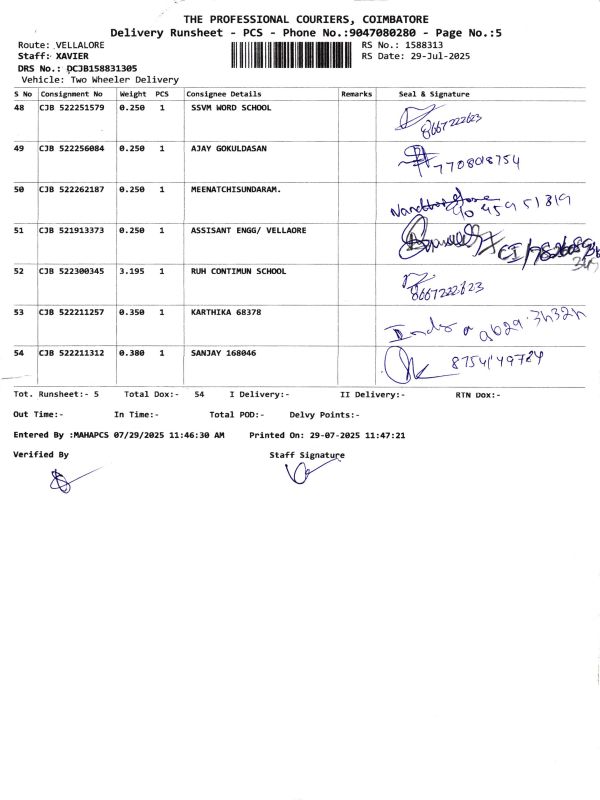 THE PROFESSIONAL COURIERS, COIMBATORE
Delivery Runsheet - PCS - Phone No.:9047080280 - Page No.:5
Route: VELLALORE RS No.: 1588313
Staff: XAVIER RS Date: 29-Jul-2025
DRS No.: DCJB158831305
Vehicle: Two Wheeler Delivery
S No Consignment No Weight PCS Consignee Details Remarks Seal & Signature
48 CJB 522251579 0.250 1 SSVM WORD SCHOOL
8667222623
49 CJB 522256084 0.250 1 AJAY GOKULDASAN
7708018754
50 CJB 522262187 0.250 1 MEENATCHISUNDARAM.
90 459 51819
51 CJB 521913373 0.250 1 ASSISANT ENGG/ VELLAORE
52 CJB 522300345 3.195 1 RUH CONTIMUN SCHOOL
8667222623
53 CJB 522211257 0.350 1 KARTHIKA 68378
54 CJB 522211312 0.380 1 SANJAY 168046
8754149784
Tot. Runsheet:- 5 Total Dox:- 54 I Delivery:- II Delivery:- RTN Dox:-
Out Time:- In Time:- Total POD:- Delvy Points:-
Entered By :MAHAPCS 07/29/2025 11:46:30 AM Printed On: 29-07-2025 11:47:21
Verified By Staff Signature